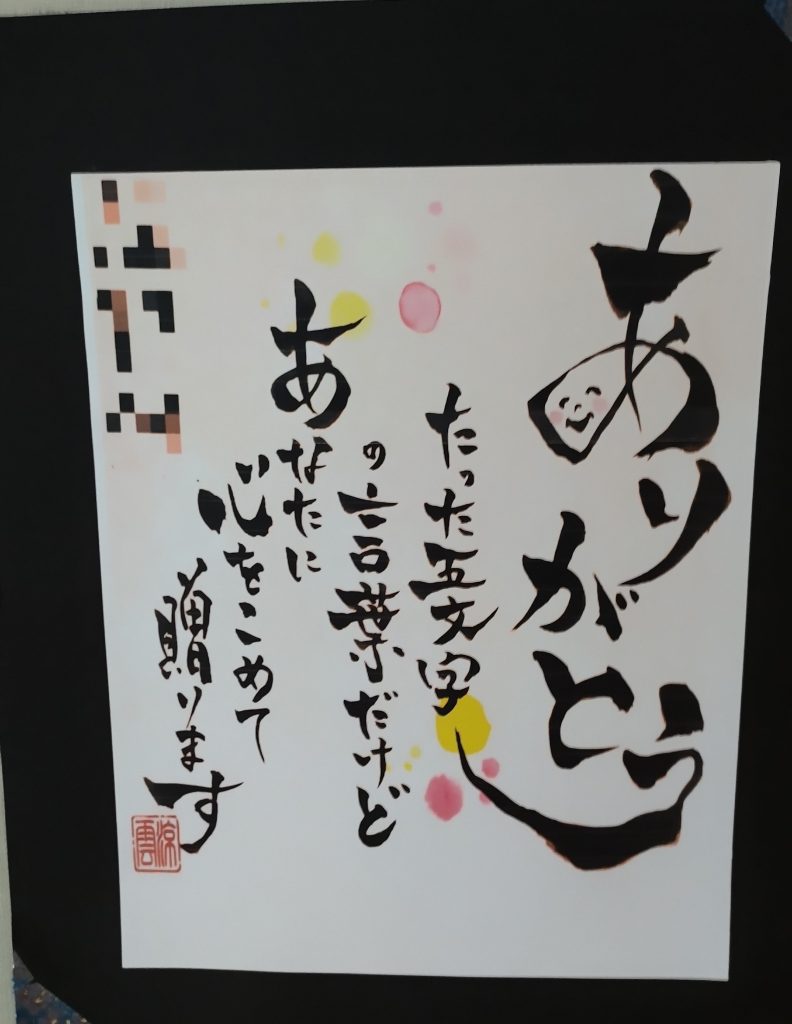 ありがとう
たった五文字
の言葉だけど
あなたに
心をこめて
贈ります
涼雲